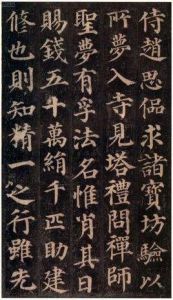 侍趙思偘求諸寶坊驗以
所夢入寺見塔禮問禪師
聖夢有孚法名惟肖其日
賜錢五十萬絹千匹助建
修也則知精一之行雖先